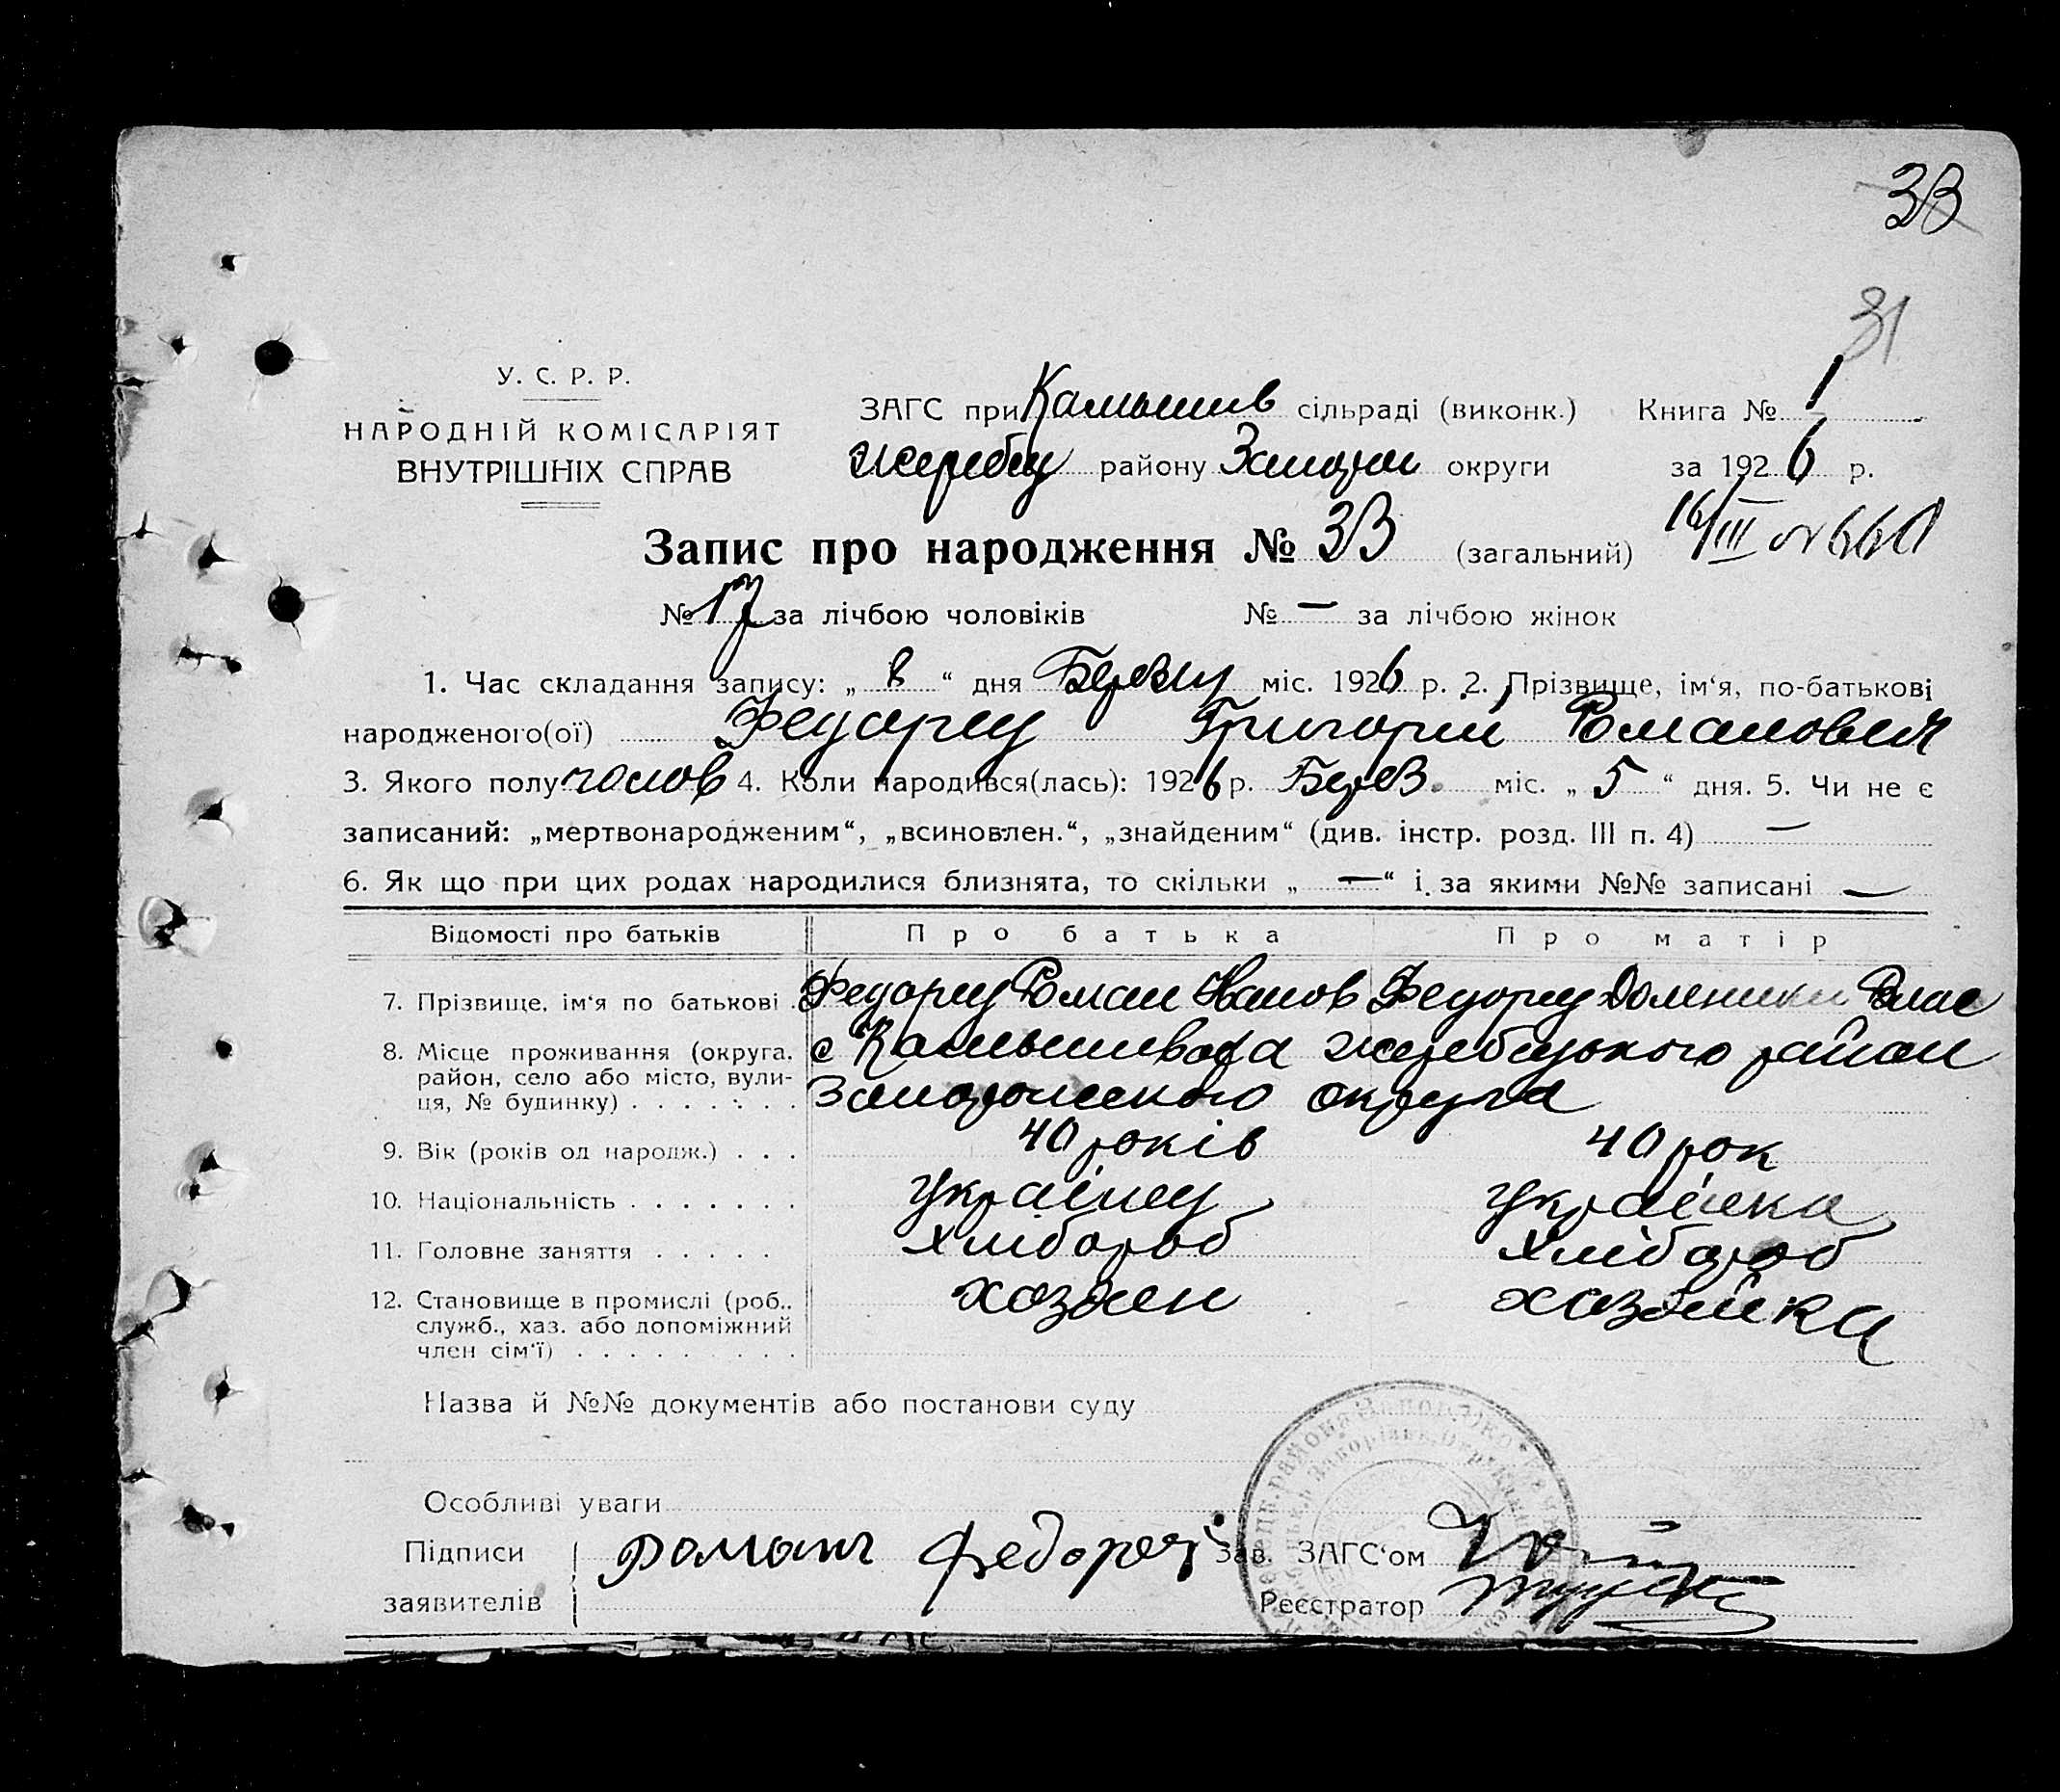 33
31
У. С. Р. Р.
НАРОДНІЙ КОМІСАРІЯТ
ВНУТРІШНІХ СПРАВ
ЗАГС при Камышив сільраді (виконк.) Книга № 1
Жеребец району Запорож округи за 1926 р.
Запис про народження № 33 (загальний) 16/III №
№ 17 за лічбою чоловіків № — за лічбою жінок
1. Час складання запису: „ 8 “ дня Березну міс. 1926 р. 2. Прізвище, ім'я, по-батькові
народженого(ої) Федорец Григорий Романович
3. Якого полу чолов 4. Коли народився(лась): 1926 р. Берез. міс. „ 5 “ дня. 5. Чи не є
записаний: „мертвонародженим“, „всиновлен.“, „знайденим“ (див. інстр. розд. III п. 4) —
6. Як що при цих родах народилися близнята, то скільки „ — “ і за якими №№ записані —
Відомості про батьків Про батька Про матір
7. Прізвище, ім'я по батькові . Федорец Роман Иванов Федорец Домника Влас
8. Місце проживання (округа, район, село або місто, вули-ця, № будинку) . . . . . . . с Камышивака Жеребецького район
Запорожского округа
9. Вік (років од народж.) . . . 40 років 40 рок
10. Національність . . . . . . . українец українка
11. Головне заняття . . . . . хлібороб хлібороб
12. Становище в промислі (роб., служб., хаз. або допоміжний член сім'ї) . . . . . . . . . хозяен хозяйка
Назва й №№ документів або постанови суду
Особливі уваги
Підписи заявителів Романъ Федорец
Зав. ЗАГС'ом
Реєстратор